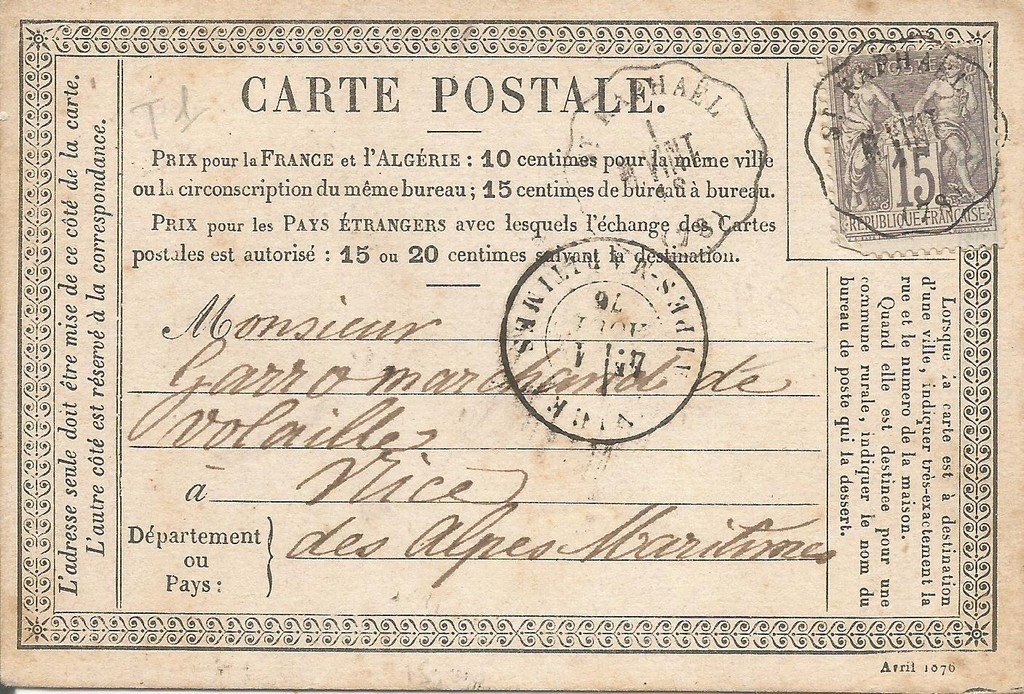 CARTE POSTALE.
T 1
PRIX pour la FRANCE et l'ALGÉRIE : 10 centimes pour la même ville
ou la circonscription du même bureau ; 15 centimes de bureau à bureau.
PRIX pour les PAYS ÉTRANGERS avec lesquels l'échange des Cartes
postales est autorisé : 15 ou 20 centimes suivant la destination.
Monsieur
Garro marchand de
Volailles
à Nice
Département
ou
Pays :
des Alpes Maritimes
L'adresse seule doit être mise de ce côté de la carte.
L'autre côté est réservé à la correspondance.
Lorsque la carte est à destination
d'une ville, indiquer très-exactement la
rue et le numero de la maison.
Quand elle est destinée pour une
commune rurale, indiquer le nom du
bureau de poste qui la dessert.
RAPHAËL
1
VINT
ST RAPHAËL
VINT
78
15
REPUBLIQUE FRANÇAISE
NICE
ALPES-MARITIMES
1
AOUT
76
Avril 1876